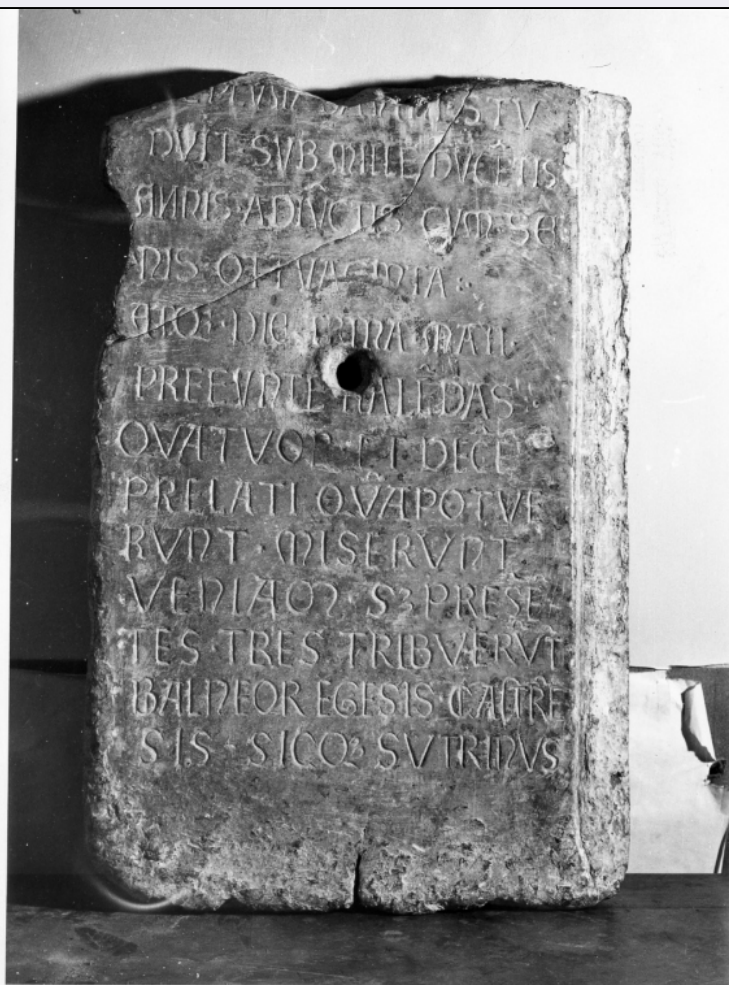 STV
DVIT · SVB MILLE DVCE͂TIS
ANNIS · ADIV͂CTIS CVM · SE
NIS · OTTVAGINTA :
ATQ3 · DIE PRIMA MAII ·
PREEVNTE KALE͂DAS
QVATVOR ET DECE͂
PRELATI QVA POTVE
RVNT · MISERVNT
VENIAM · S3 PRESE͂
TES · TRES TRIBVERV͂T
BALNEOREGESIS CASTRE͂
SIS · SICQ3 SVTRINVS